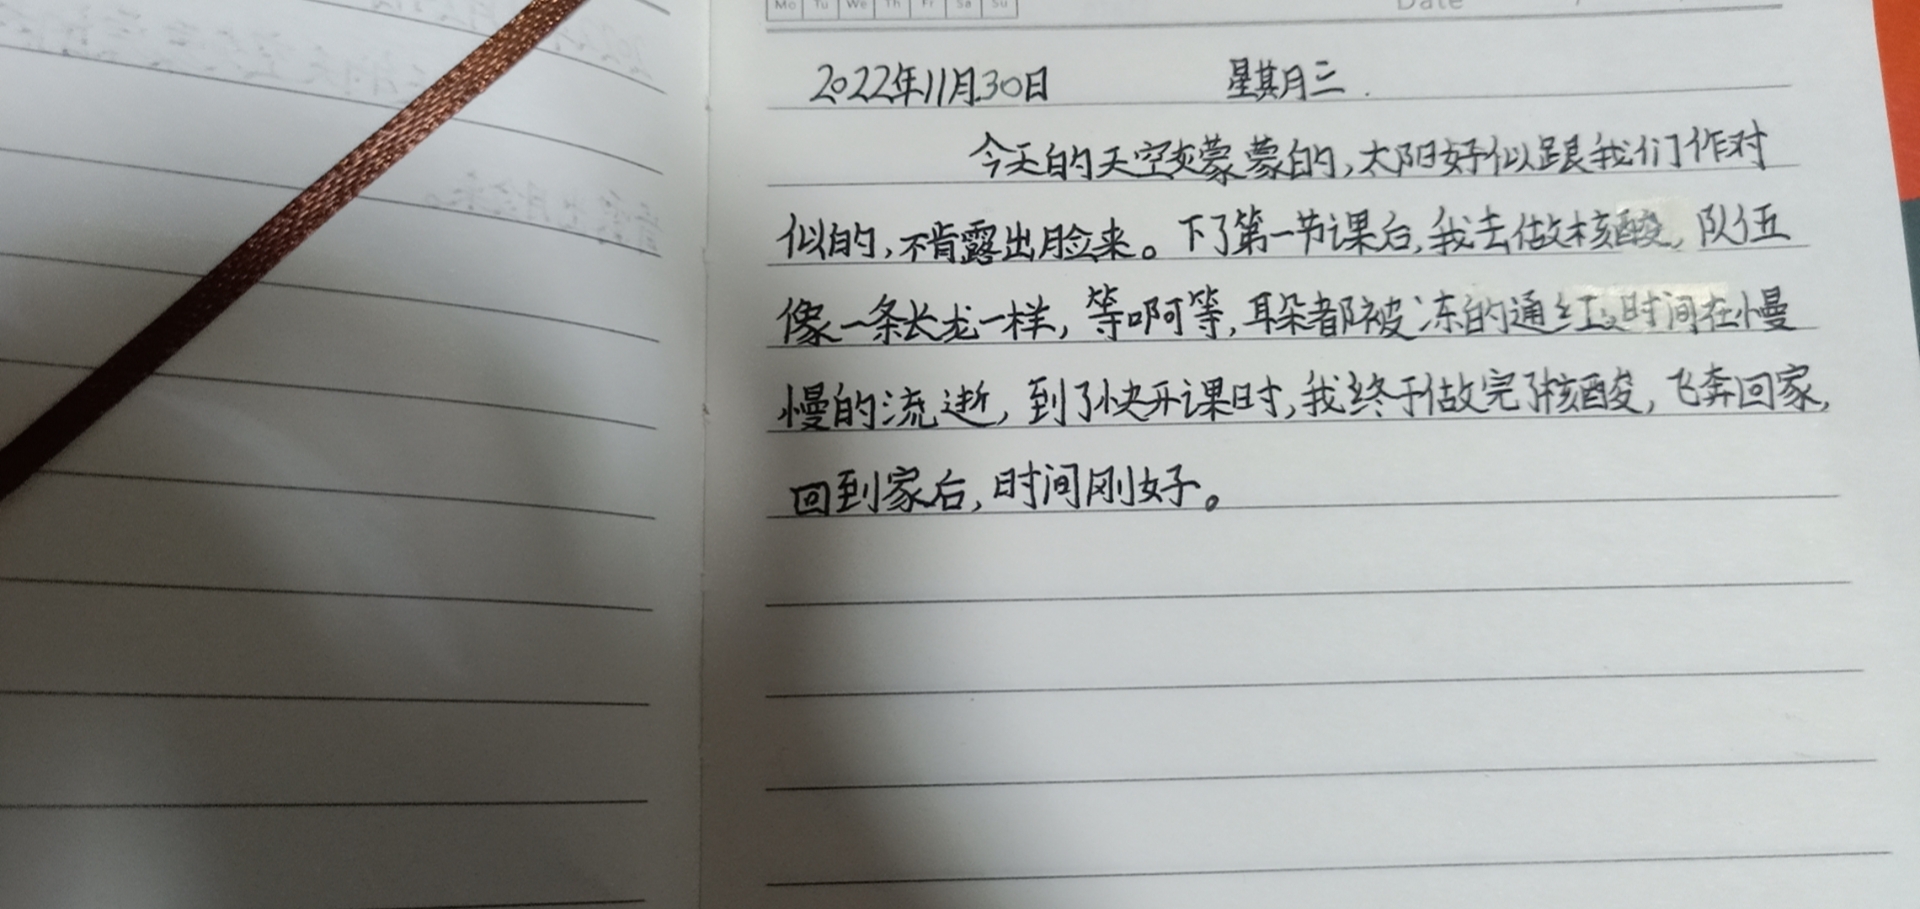 Mo Tu We Th Fr Sa Su
Date / /
2022年11月30日 星期三.
今天的天空灰蒙蒙的,太阳好似跟我们作对
似的,不肯露出脸来。下了第一节课后,我去做核酸,队伍
像一条长龙一样,等啊等,耳朵都被冻的通红,时间在慢
慢的流逝,到了快开课时,我终于做完了核酸,飞奔回家,
回到家后,时间刚好。